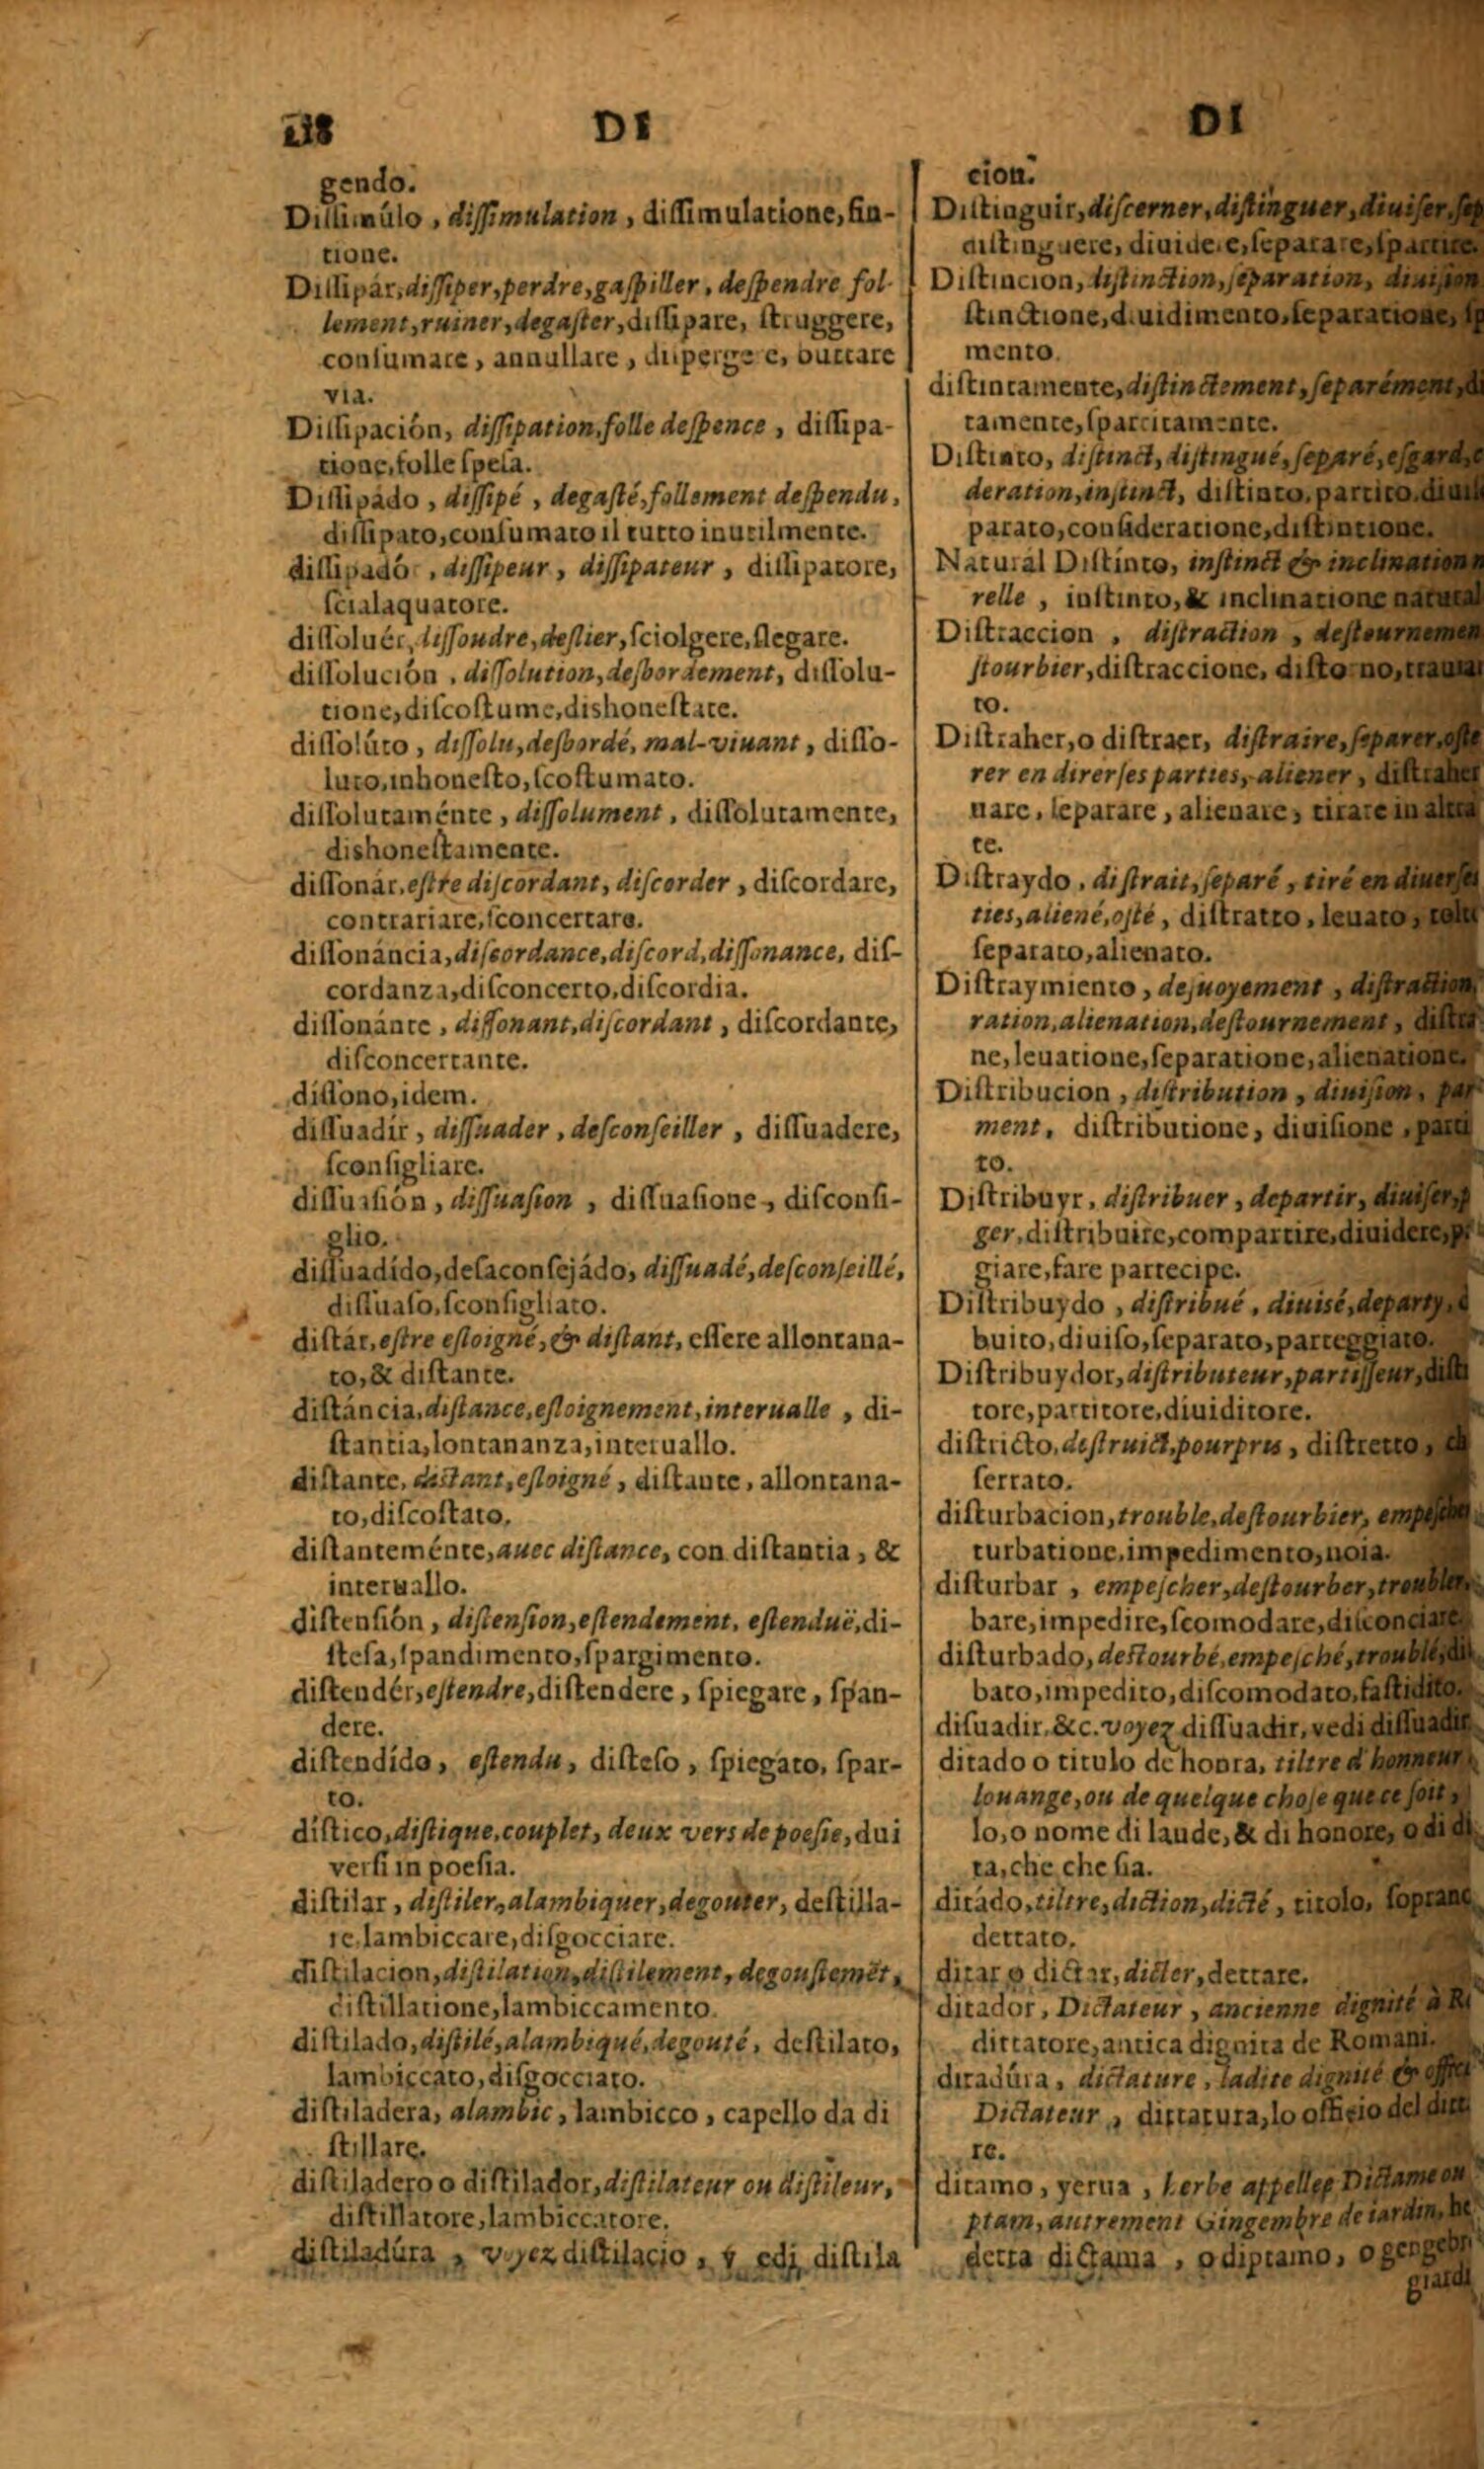 DI
gendo.
Dissimúlo, dissimulation, dissimulatione, fin-
tione.
Dissipár, dissiper, perdre, gaſpiller, deſpendre fol-
lement, ruiner, degaſter, dissipare, ſtruggere,
conſumare, annullare, buttare
via.
Dissipación, dissipation, folle deſpence, dissipa-
tione, folle ſpeſa.
Dissipádo, dissipé, degaſté, follement deſpendu,
dissipato, conſumato il tutto inutilmente.
dissipadó, dissipeur, dissipateur, dissipatore,
ſcialaquatore.
diſſoluér, diſſoudre, deſlier, ſciolgere, ſlegare.
diſſolución, diſſolution, deſbordement, diſſolu-
tione, diſcoſtume, dishoneſtate.
diſſolúto, diſſolu, deſbordé, mal-viuant, diſſo-
luto, inhoneſto, ſcoſtumato.
diſſolutaménte, diſſolument, diſſolutamente,
dishoneſtamente.
diſſonár, eſtre diſcordant, diſcorder, diſcordare,
contrariare, ſconcertare.
diſſonáncia, diſcordance, diſcord, diſſonance, diſ-
cordanza, diſconcerto, diſcordia.
diſſonánte, diſſonant, diſcordant, diſcordante,
diſconcertante.
díſſono, idem.
diſſuadír, diſſuader, deſconſeiller, diſſuadere,
ſconſigliare.
diſſuaſión, diſſuaſion, diſſuaſione, diſconſi-
glio.
diſſuadído, deſaconſejádo, diſſuadé, deſconſeillé,
diſſuaſo, ſconſigliato.
diſtár, eſtre eſloigné, & diſtant, eſſere allontana-
to, & diſtante.
diſtáncia, diſtance, eſloignement, interualle, di-
ſtantia, lontananza, interuallo.
diſtante, diſtant, eſloigné, diſtante, allontana-
to, diſcoſtato.
diſtanteménte, auec diſtance, con diſtantia, &
interuallo.
diſtenſión, diſtenſion, eſtendement, eſtenduë, di-
ſteſa, ſpandimento, ſpargimento.
diſtendér, eſtendre, diſtendere, ſpiegare, ſpan-
dere.
diſtendído, eſtendu, diſteſo, ſpiegato, ſpar-
to.
díſtico, diſtique, couplet, deux vers de poeſie, dui
verſi in poeſia.
diſtilar, diſtiler, alambiquer, degouter, deſtilla-
re, lambiccare, diſgocciare.
diſtilacion, diſtilation, diſtilement, degouſtemẽt,
diſtillatione, lambiccamento.
diſtilado, diſtilé, alambiqué, degouté, deſtilato,
lambiccato, diſgocciato.
diſtiladera, alambic, lambicco, capello da di
ſtillare.
diſtiladero o diſtilador, diſtilateur ou diſtileur,
diſtillatore, lambiccatore.
diſtiladúra, voyez diſtilacio, vedi diſtila
DI
cion.
Diſtinguir, diſcerner, diſtinguer, diuiſer, ſep
diſtinguere, diuidere, ſeparare, ſpartire.
Diſtincion, diſtinction, ſéparation, diuiſion
ſtinctione, diuidimento, ſeparatione, ſp
mento.
diſtintamente, diſtinctement, ſeparément, di
tamente, ſpartitamente.
Diſtinto, diſtinct, diſtingué, ſeparé, eſgard, c
deration, inſtinct, diſtinto, partito, diuiſ
parato, conſideratione, diſtintione.
Naturál Diſtínto, inſtinct & inclination n
relle, inſtinto, & inclinatione natural
Diſtraccion, diſtraction, deſtournemen
ſtourbier, diſtraccione, diſtorno, trauia
to.
Diſtraher, o diſtraer, diſtraire, ſeparer, oſte
rer en direrſes parties, aliener, diſtraher
uare, ſeparare, alienare, tirare in altra
te.
Diſtraydo, diſtrait, ſeparé, tiré en diuerſes
ties, aliené, oſté, diſtratto, leuato, tolt
ſeparato, alienato.
Diſtraymiento, deſuoyement, diſtraction,
ration, alienation, deſtournement, diſtra
ne, leuatione, ſeparatione, alienatione.
Diſtribucion, diſtribution, diuiſion, par
ment, diſtributione, diuiſione, parti
to.
Diſtribuyr, diſtribuer, departir, diuiſer, p
ger, diſtribuire, compartire, diuidere, p
giare, fare partecipe.
Diſtribuydo, diſtribué, diuisé, departy,
buito, diuiſo, ſeparato, parteggiato.
Diſtribuydor, diſtributeur, partiſſeur, diſt
tore, partitore, diuiditore.
diſtricto, deſtruict, pourpris, diſtretto,
ſerrato.
diſturbacion, trouble, deſtourbier, empeſche
turbatione, impedimento, noia.
diſturbar, empeſcher, deſtourber, troubler,
bare, impedire, ſcomodare, diſconciare.
diſturbado, deſtourbé, empeſché, troublé, di
bato, impedito, diſcomodato, faſtidito.
diſuadir, &c. voyez diſſuadir, vedi diſſuadir
ditado o titulo de honra, tiltre d'honneur
louange, ou de quelque choſe que ce ſoit,
lo, o nome di laude, & di honore, o di di
ta, che che ſia.
ditádo, tiltre, diction, dicté, titolo, ſopranc
dettato.
ditar o dictar, dicter, dettare.
ditador, Dictateur, ancienne dignité à R
dittatore, antica dignita de Romani.
ditadúra, dictature, ladite dignité & offi
Dictateur, dittatura, lo officio del ditt
re.
ditamo, yerua, herbe appellee Dictame ou
ptam, autrement Gingembre de iardin, he
detta dictama, o diptamo, o gengebr
giardi